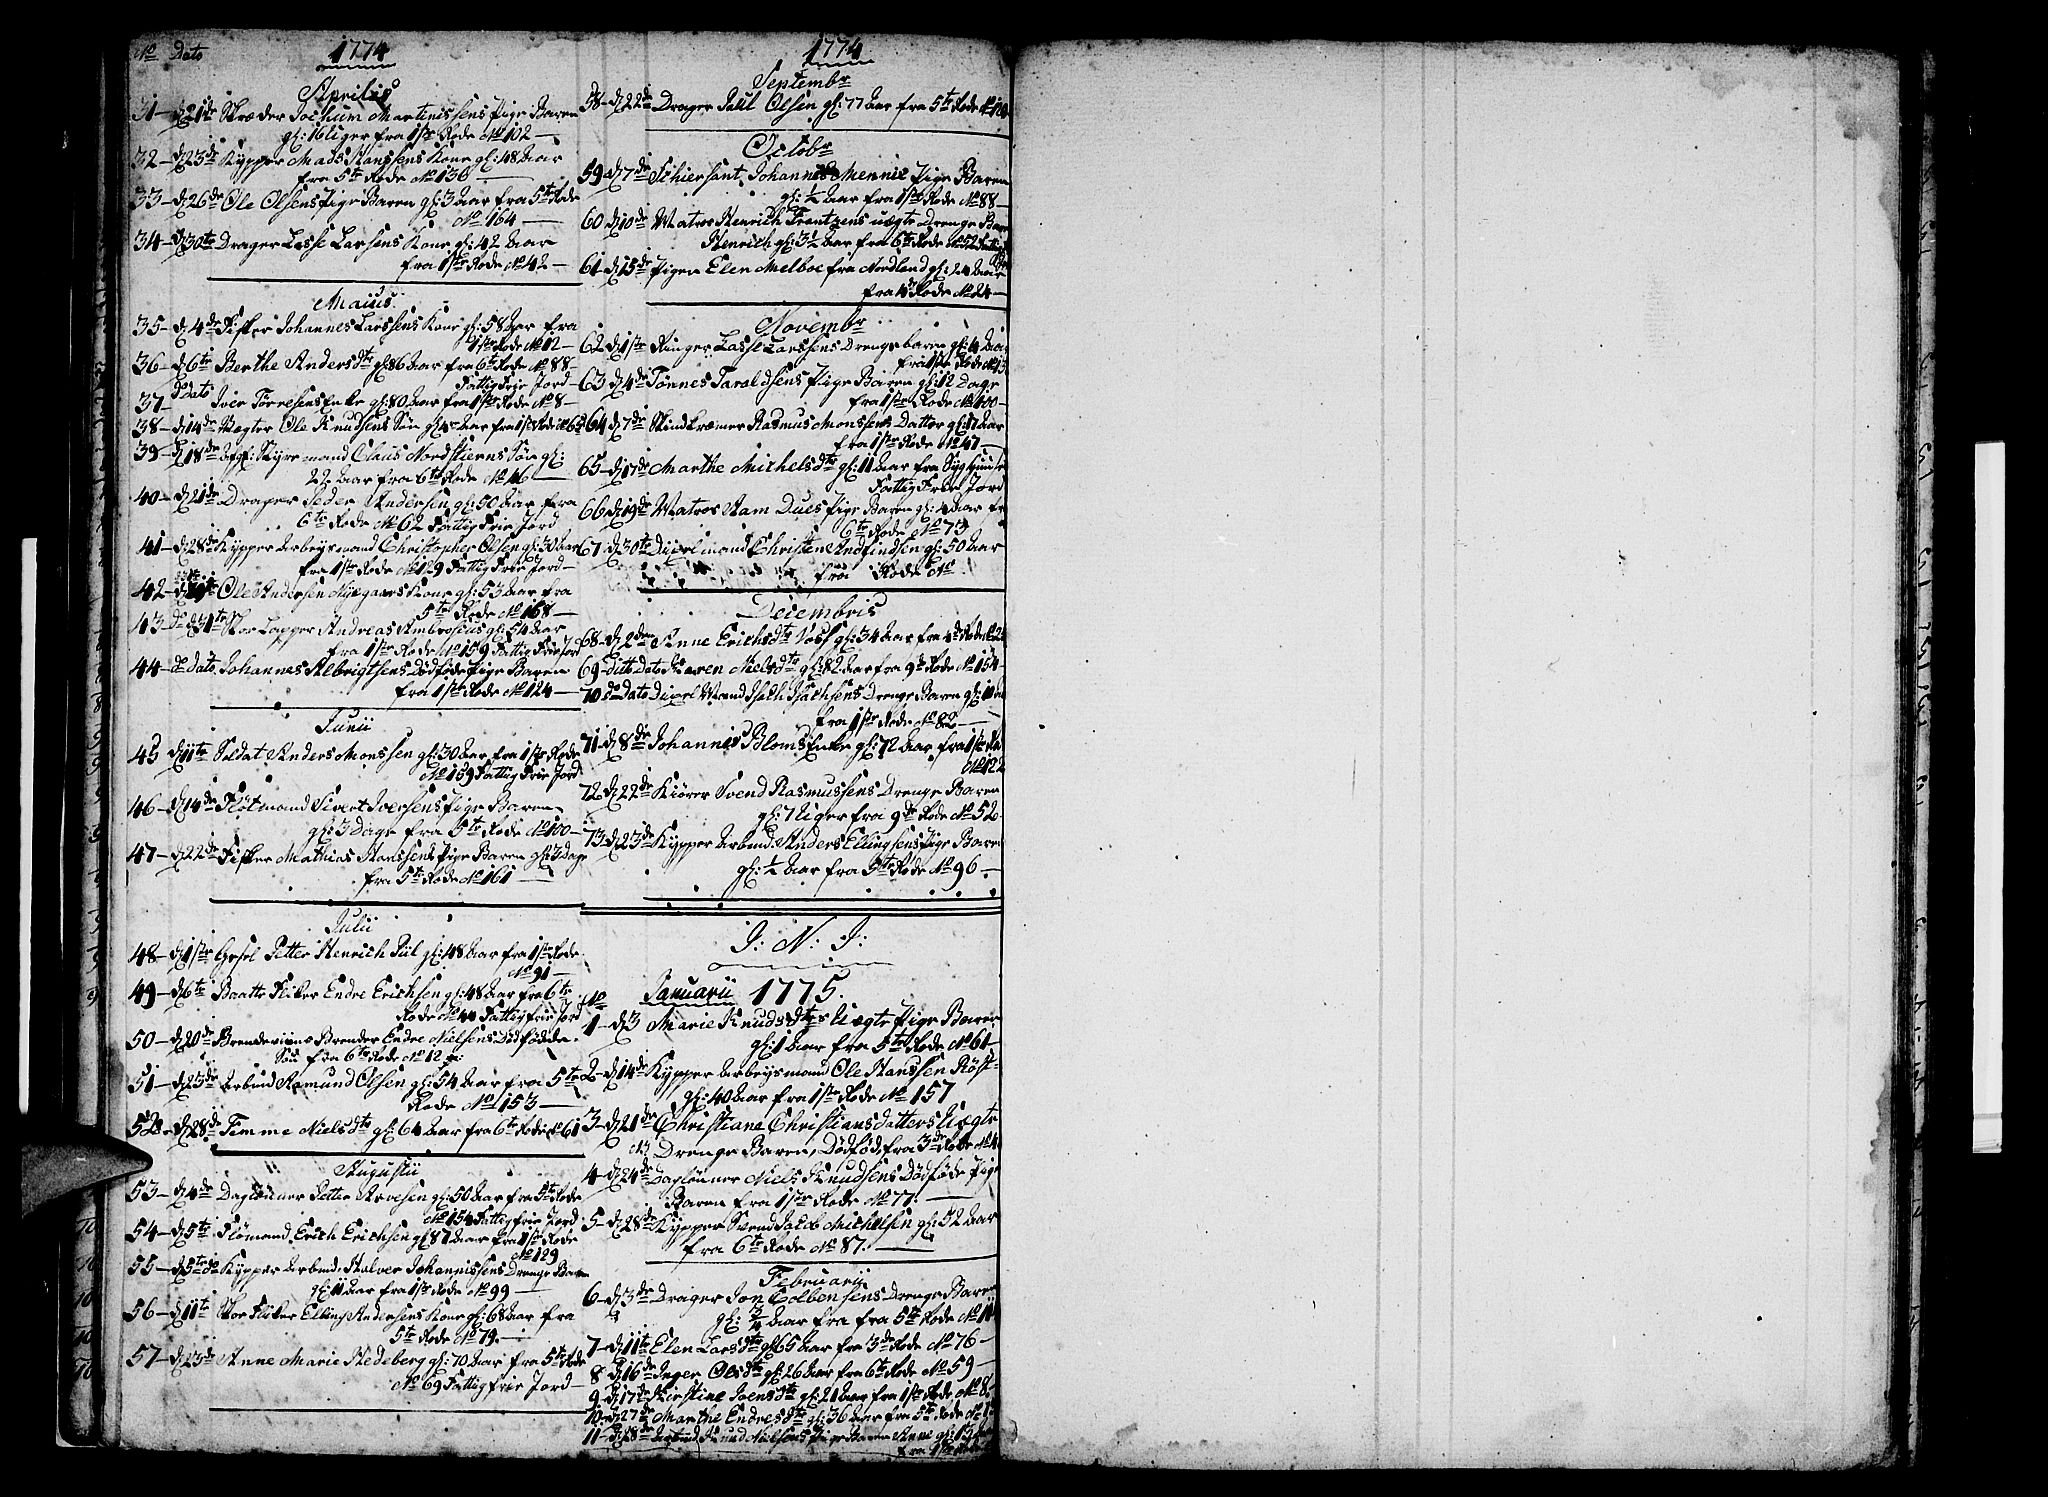 No Dato 1774
Aprilis
31 – d 21de Skræder Jochum Martinissens Pige Baren
gl: 16 Uger fra 1ste Rode No 102 –
32 – d 23de Kypper Mads Hanssens Kone gl: 48 Aar
fra 5te Rode No 136 –
33 – d 26de Ole Olsens Pige Baren gl: 3 Aar fra 5te Rode
No 164 –
34 – d 30te Drager Lasse Larsens Kone gl: 42 Aar
fra 1ste Rode No 42 –
Maius
35 – d 4de Fisker Johannes Larssens Kone gl: 58 Aar fra
1ste Rode No 12 –
36 – d 6te Berthe Andersdtr gl: 86 Aar fra 6te Rode No 88 –
Fattig Frie Jord –
37 – do Dato Iver Torresens Enke gl: 80 Aar fra 1ste Rode No 8 –
38 – d 14de Vægter Ole Knudsens Søn gl: Aar fra 1ste Rode
39 – d 18de Styrmand Claus Nordstierns Søn gl:
22 Aar fra 6te Rode No 46 –
40 – d 21de Drager Peder Andersen gl: 50 Aar fra
6te Rode No 62 Fattig Frie Jord
41 – d 28de Kypper Arbeysmand Christopher Olsen gl: 30 Aar
fra 1ste Rode No 129 Fattig Frie Jord –
42 – Ole Andersen Nyegaars Kone gl: 53 Aar fra
5te Rode No 168 –
43 – d 31te Skoe Lapper Andreas Ambrosius gl: 54 Aar
fra 1ste Rode No 159 Fattig Frie Jord
44 – do Dato Johannes Albrigtsens Dødføde Pige Baren
fra 1ste Rode No 124 –
Junii
45 d 11te Soldat Anders Monssen gl: 30 Aar fra 1ste Rode
No 159 Fattig Frie Jord
46 – d 14de Fløtmand Sivert Iversens Pige Baren
gl: 3 Dage fra 5te Rode No 100 –
47 – d 22de Fisker Mathias Hanssens Pige Baren gl: 3 Dage
fra 5te Rode No 161 –
Julii
48 – d 1ste Petter Henrich Piil gl: 48 Aar fra 1ste Rode
No 91 –
49 – d 6te Baatte Flikker Endre Erichsen gl: 48 Aar fra 6te
Rode No 44 Fattig frie Jord
50 – d 20de Brendeviins Brender Endre Nielsens Dødfødde
Søn fra 6te Rode No 12
51 – d 23de Arbmd Romund Olsen gl: 54 Aar fra 5te
Rode No 153 –
52 – d 28de Temme Nielsdtr gl: 64 Aar fra 6te Rode No 61
Augustii
53 – d 4de Dagløuner Petter Arvesen gl: 50 Aar fra 5te Rode
No 154 Fattig frie Jord
54 – d 5te Flømand Erich Erichsen gl: 87 Aar fra 1ste Rode
No 129
55 – d 5te do Kypper Arbmd. Halver Johannissens Drenge Baren
gl: 11 Aar fra 1ste Rode No 99 –
56 – d 11te Skoe Fliker Elling Andersens Kone gl: 68 Aar fra
5te Rode No 79. –
57 – d 23de Anne Marie Hedeberg gl: 70 Aar fra 5te Rode
No 69 Fattig frie Jord –
1774
Septembr
58 – d 22de Drager Poul Olsen gl: 77 Aar fra 5te Rode
Octobr
59 d 7de Schiersant Johannes Mennie Pige Baren
gl: ½ Aar fra 1ste Rode No 88 –
60 d 10de Matros Henrich Frentzens uægte Drenge Baren
Henrich gl: 3½ Aar fra 6te Rode No 52 Fattig
61 – d 15de Pigen Elen Melboe fra Nordland gl: 24 Aar
fra 4de Rode No 24 –
Novembr
62 d 1ste Ringer Lasse Larssens Drenge baren gl: 4 Aar
fra 1ste Rode No 13
63 d 4de Tønnes Taraldsens Pige Baren gl: 12 Dage
fra 1ste Rode No 100 –
64 d 7de Skindkræmer Rasmus Monsens Datter gl: 17 Aar
fra 1ste Rode No 47 –
65 – d 17de Marthe Michelsdtr gl: 11 Aar fra Syghuuset
Fattig Frie Jord
66 d 19de Matros Ham Dues Pige Baren gl: 4 Aar fra
6te Rode No 73
67 – d 30te Dixelmand Christen Andfindsen gl: 50 Aar
fra Rode No
Decembris
68 – d 2den Anne Erichsdtr Voss gl: 34 Aar fra 4de Rode
69 – ditto Dato Karen Nielsdtr gl: 82 Aar fra 9de Rode No 154 –
70 do Dato Dixel Mand Isach Isachsens Drenge Baren gl: 10
fra 1ste Rode No 82 –
71 – d 8de Johannis Bloms Enke gl: 72 Aar fra 1ste
No 122
72 d 22de Kiører Svend Rasmussens Drenge Baren
gl: 7 Uger fra 9de Rode No 52
73 – d 23de Kypper Arbmd. Anders Ellingsens Pige Baren
gl: ½ Aar fra 5te Rode No 96 –
J: N: J:
No Januarii 1775.
1 – d 3 Marie Knudsdtrs Uægte Pige Baren
gl: 1 Aar fra 5te Rode No 61 –
2 – d 14de Kypper Arbeysmand Ole Hanssen Röst –
gl: 40 Aar fra 1ste Rode No 157
3 – d 21de Christiane Christiansdatters Uægte
Drenge Baren, Dødfød, fra 3de Rode
4 – d 24de Dagløuner Niels Knudsens Dødføde Pige
Baren fra 1ste Rode No 77. –
5 – d 28de Kypper Svend Jacob Michelsen gl: 52 Aar
fra 6te Rode No 87. –
Februarii
6 – d 3de Drager Jon Colbensens Drenge Baren
gl: ¾ Aar fra fra 5te Rode
7 – d 11te Elen Larsdtr gl: 65 Aar fra 3de Rode No 76 –
8 d 16de Inger Olsdtr gl: 26 Aar fra 6te Rode No 59 –
9 – d 17de Kirstine Joensdtr gl: 21 Aar fra 1ste Rode No 8
10 – d 27de Marthe Endresdtr gl: 36 Aar fra 5te Rode
11 – d 28de Arbmd Knud Nielsens Pige Baren Anne gl: 15
fra 1ste Rode